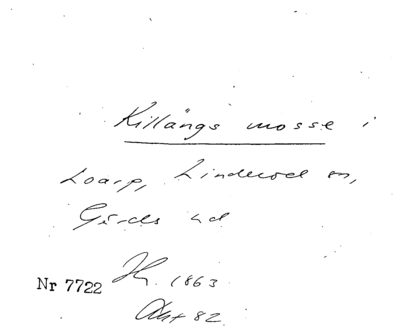 Killängs mosse i
Loarp, Linderöd sn,
Gärds hd
Nr 7722 Hz. 1863
Okt 82